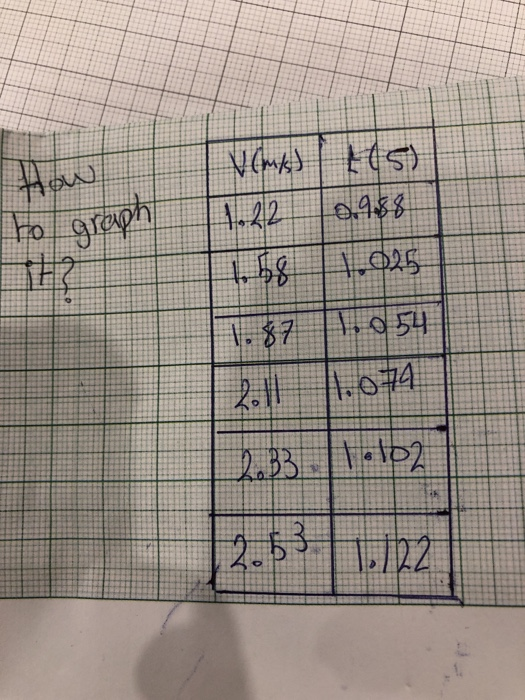 How
to graph
it?
V(m/s) t(s)
1.22 0.988
1.58 1.025
1.87 1.054
2.11 1.079
2.33 1.102
2.53 1.122